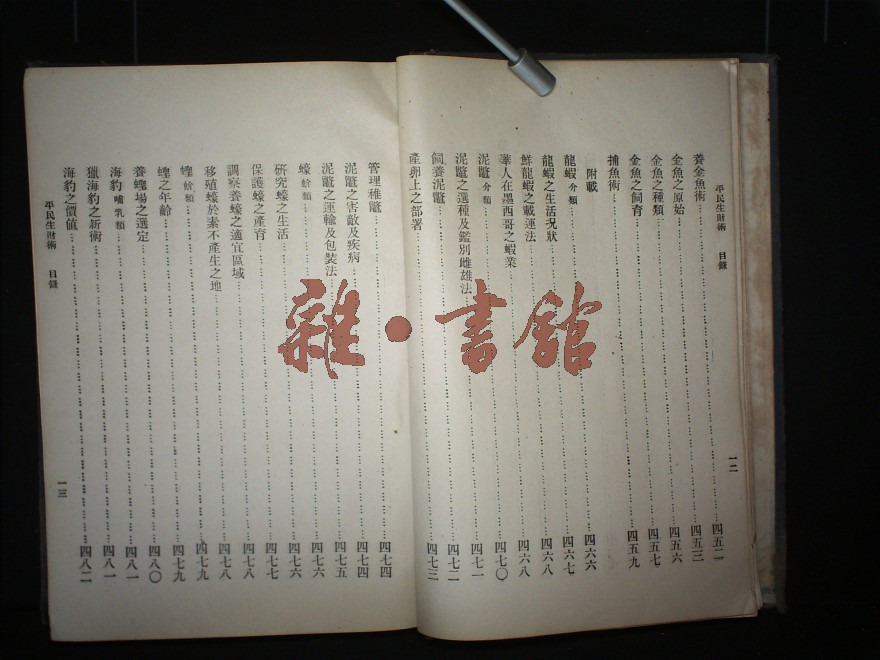 平民生財術 目錄 一二
養金魚術……四五二
金魚之原始……四五三
金魚之種類……四五六
金魚之飼育……四五七
捕魚術……四五九
附載
龍蝦 介類……四六六
龍蝦之生活况狀……四六七
鮮龍蝦之載運法……四六八
華人在墨西哥之蝦業……四六八
泥鼈 介類……四七〇
泥鼈之選種及鑑別雌雄法……四七一
飼養泥鼈……四七二
產卵上之部署……四七三
管理稚鼈……四七四
泥鼈之害敵及疾病……四七四
泥鼈之運輸及包裝法……四七五
蠔 蛤類……四七六
研究蠔之生活……四七六
保護蠔之產育……四七七
調察養蠔之適宜區域……四七八
移殖蠔於素不產生之地……四七八
蟶 蛤類……四七九
蟶之年齡……四七九
養蟶場之選定……四八〇
海豹 哺乳類……四八一
獵海豹之新術……四八一
海豹之價值……四八二
平民生財術 目錄 一三
雜·書館